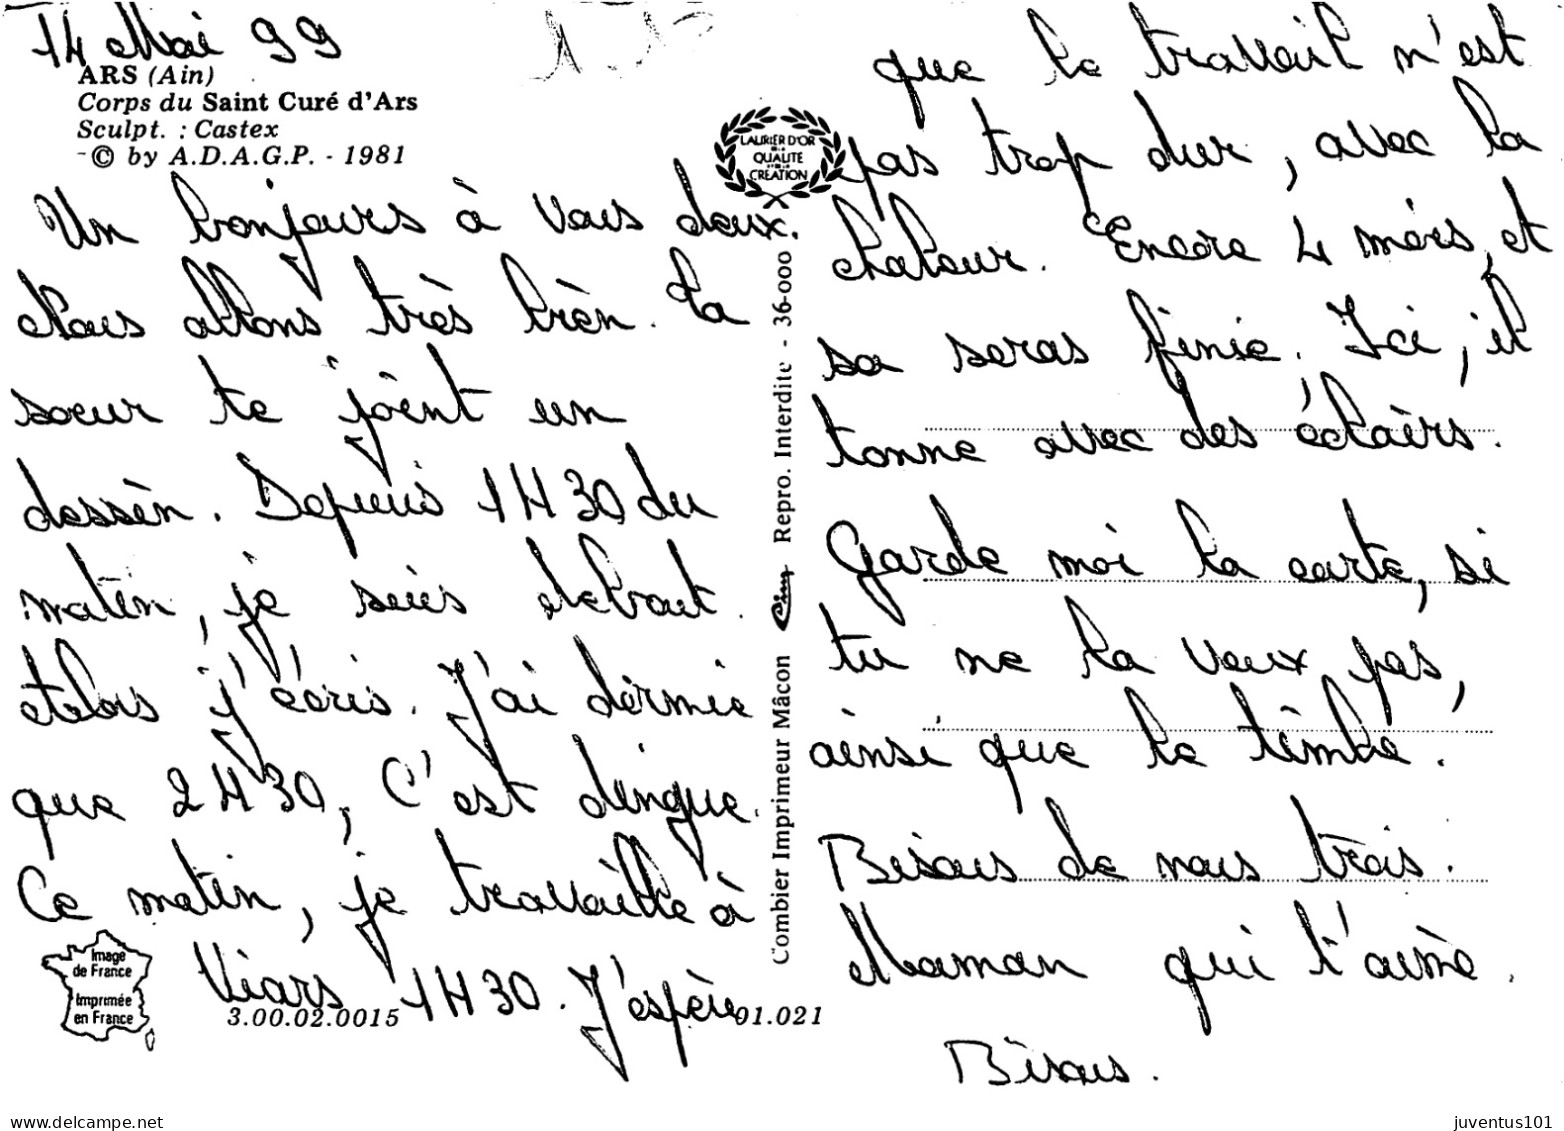 14 Mai 99
ARS (Ain)
Corps du Saint Curé d'Ars
Sculpt. : Castex
© by A.D.A.G.P. - 1981
Un bonjours à vous deux.
Nous allons très bièn. La
soeur te joint un
dessin. Depuis 1H30 du
matin, je suis debout.
etelors j'écris. J'ai dormie
que 2H30, C'est dingue.
Ce matin, je travaille à
Viars 1H30. J'espère
Image
de France
Imprimée
en France
3.00.02.0015
01.021
LAURIER D'OR
DE LA
QUALITE
CREATION
Combier Imprimeur Mâcon Cim Repro. Interdite - 36-000
que le travail n'est
pas trop dur, avec la
chaleur. Encore 4 mois, et
sa seras finie. Ici, il
tonne avec des éclairs.
Garde moi la carte, si
tu ne la veux pas,
ainsi que le timbre.
Bisous de nous trois.
Maman qui t'aime.
Bisous.
www.delcampe.net
juventus101